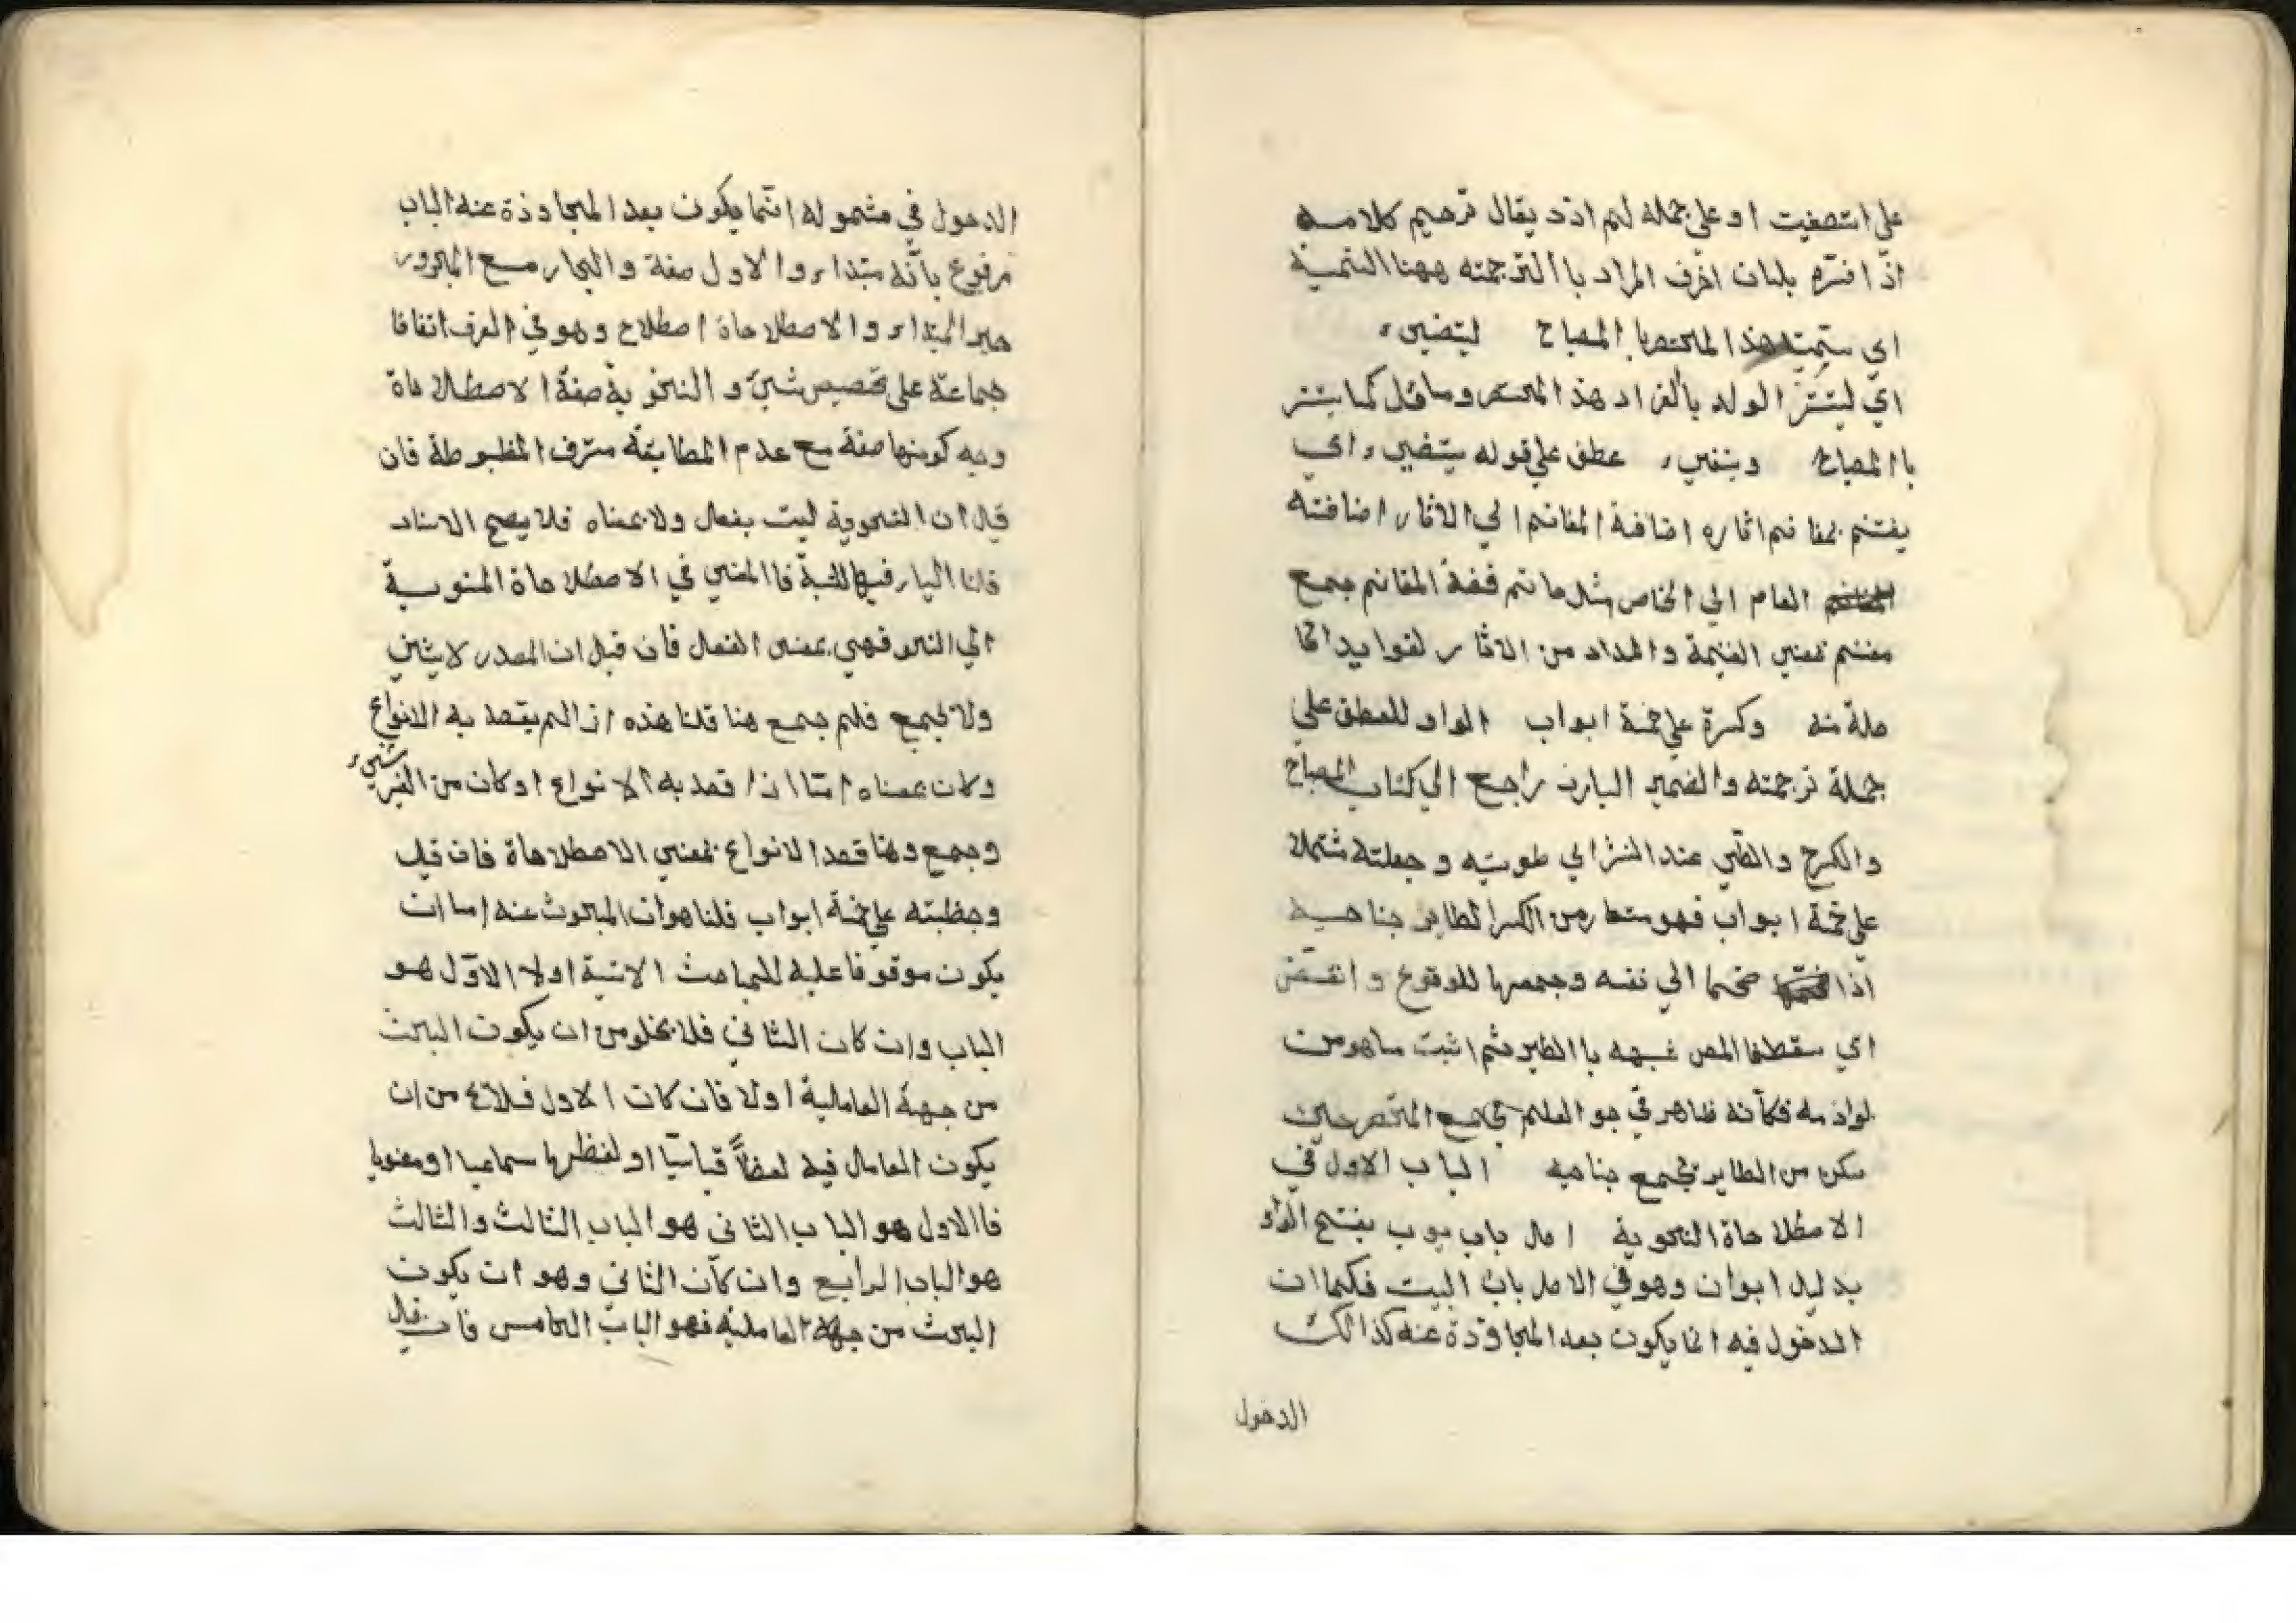 على انتصفيت او على جملة لم ازد يقال ترجم كلامه
اذا فسره بلسان اخرف المراد باالترجمته ههنا التسمية
اي سميت هذا المختصر باالمصباح ليتضيء
اي ليتنز الولد بالفراد هذ المختصر ومسائل كما يتنر
باالمصباح وبنفيء عطف على قوله يتضيء اي
يفتنم بمغا نم اثاره اضافة المغانم الي الاثار اضافته
العام الي الخاص مثل خاتم فضة المغانم جمع
مغنم بمعني الغنيمة والمراد من الاثار لفوايد الحا
صلة منه وكسرة على خمسة ابواب الواو للعطف على
جملة ترجمته والضمير البارز راجع الي كتاب المصباح
والكسرح والطي عند النشر اي طويته وجعلته مشتملا
على خمسة ابواب فهو مستعار من الكسر الطاير جناحيه
اذا ضمهما الي نفسه وجمعها للوقوع وانقض
اي سقط فا المص شبهه باالطير ثم اثبت ما هو من
لوازمه فكأنه طاهر في جو العلم بجمع المختصر حين
سكن من الطاير بجمع جناحيه الباب الاول في
الاصطلاحاة النحوية اصل باب بوب بفتح الواو
بدليل ابوان وهو في الاصل باب البيت فكما ان
الدخول فيه انما يكون بعد المجاوزة عنه كذالك
الدخول
الدحول في مشموله انما يكون بعد المجاوزة عنه الباب
مرفوع بانه مبتداء والاول صفة والجار مع المجرور
خبر المبتداء والاصطلاحاة اصطلاح وهو في العرف اتفاقا
جماعة على تخصيص شيئ والنحوية صفة الاصطلاحاة
وجه كونها صفة مع عدم المطابقة مترف المظبوطة فان
قيل ان النحوية ليت بفعل ولا بمعناه فلا يصح الاسناد
قلنا الياء فيها للنسبة فاالمعني في الاصطلاحاة المنوبة
الي النحو فهي بمعنى الفعل فان قيل ان المصدر لا يثني
ولا يجمع فلم جمع هنا قلنا هذه اذا لم يقصد به الانواع
وكان بمعناه امتا اذا قصد به الانواع او كان من الغير شيء
وجمع وهنا قصد الانواع بمعني الاصطلاحاة فان قيل
وجظبته على خمسة ابواب قلنا هو ان المبحوث عنه اما ان
يكون موقوفا عليه للمباحث الاتية اولا الاول هو
الباب وان كان الثاني فلا يخلو من ان يكون البحث
من جهة العاملية اولا فان كان الاول فلا ئ من ان
يكون العامل فيه لفظاً قياسيّا او لفظيها سماعيا او معنويا
فاالاول هو الباب الثاني هو الباب الثالث والثالث
هو الباب الرابع وان كان الثاني وهو ان يكون
البحث من جهة العاملية فهو الباب الخامس فان قيل